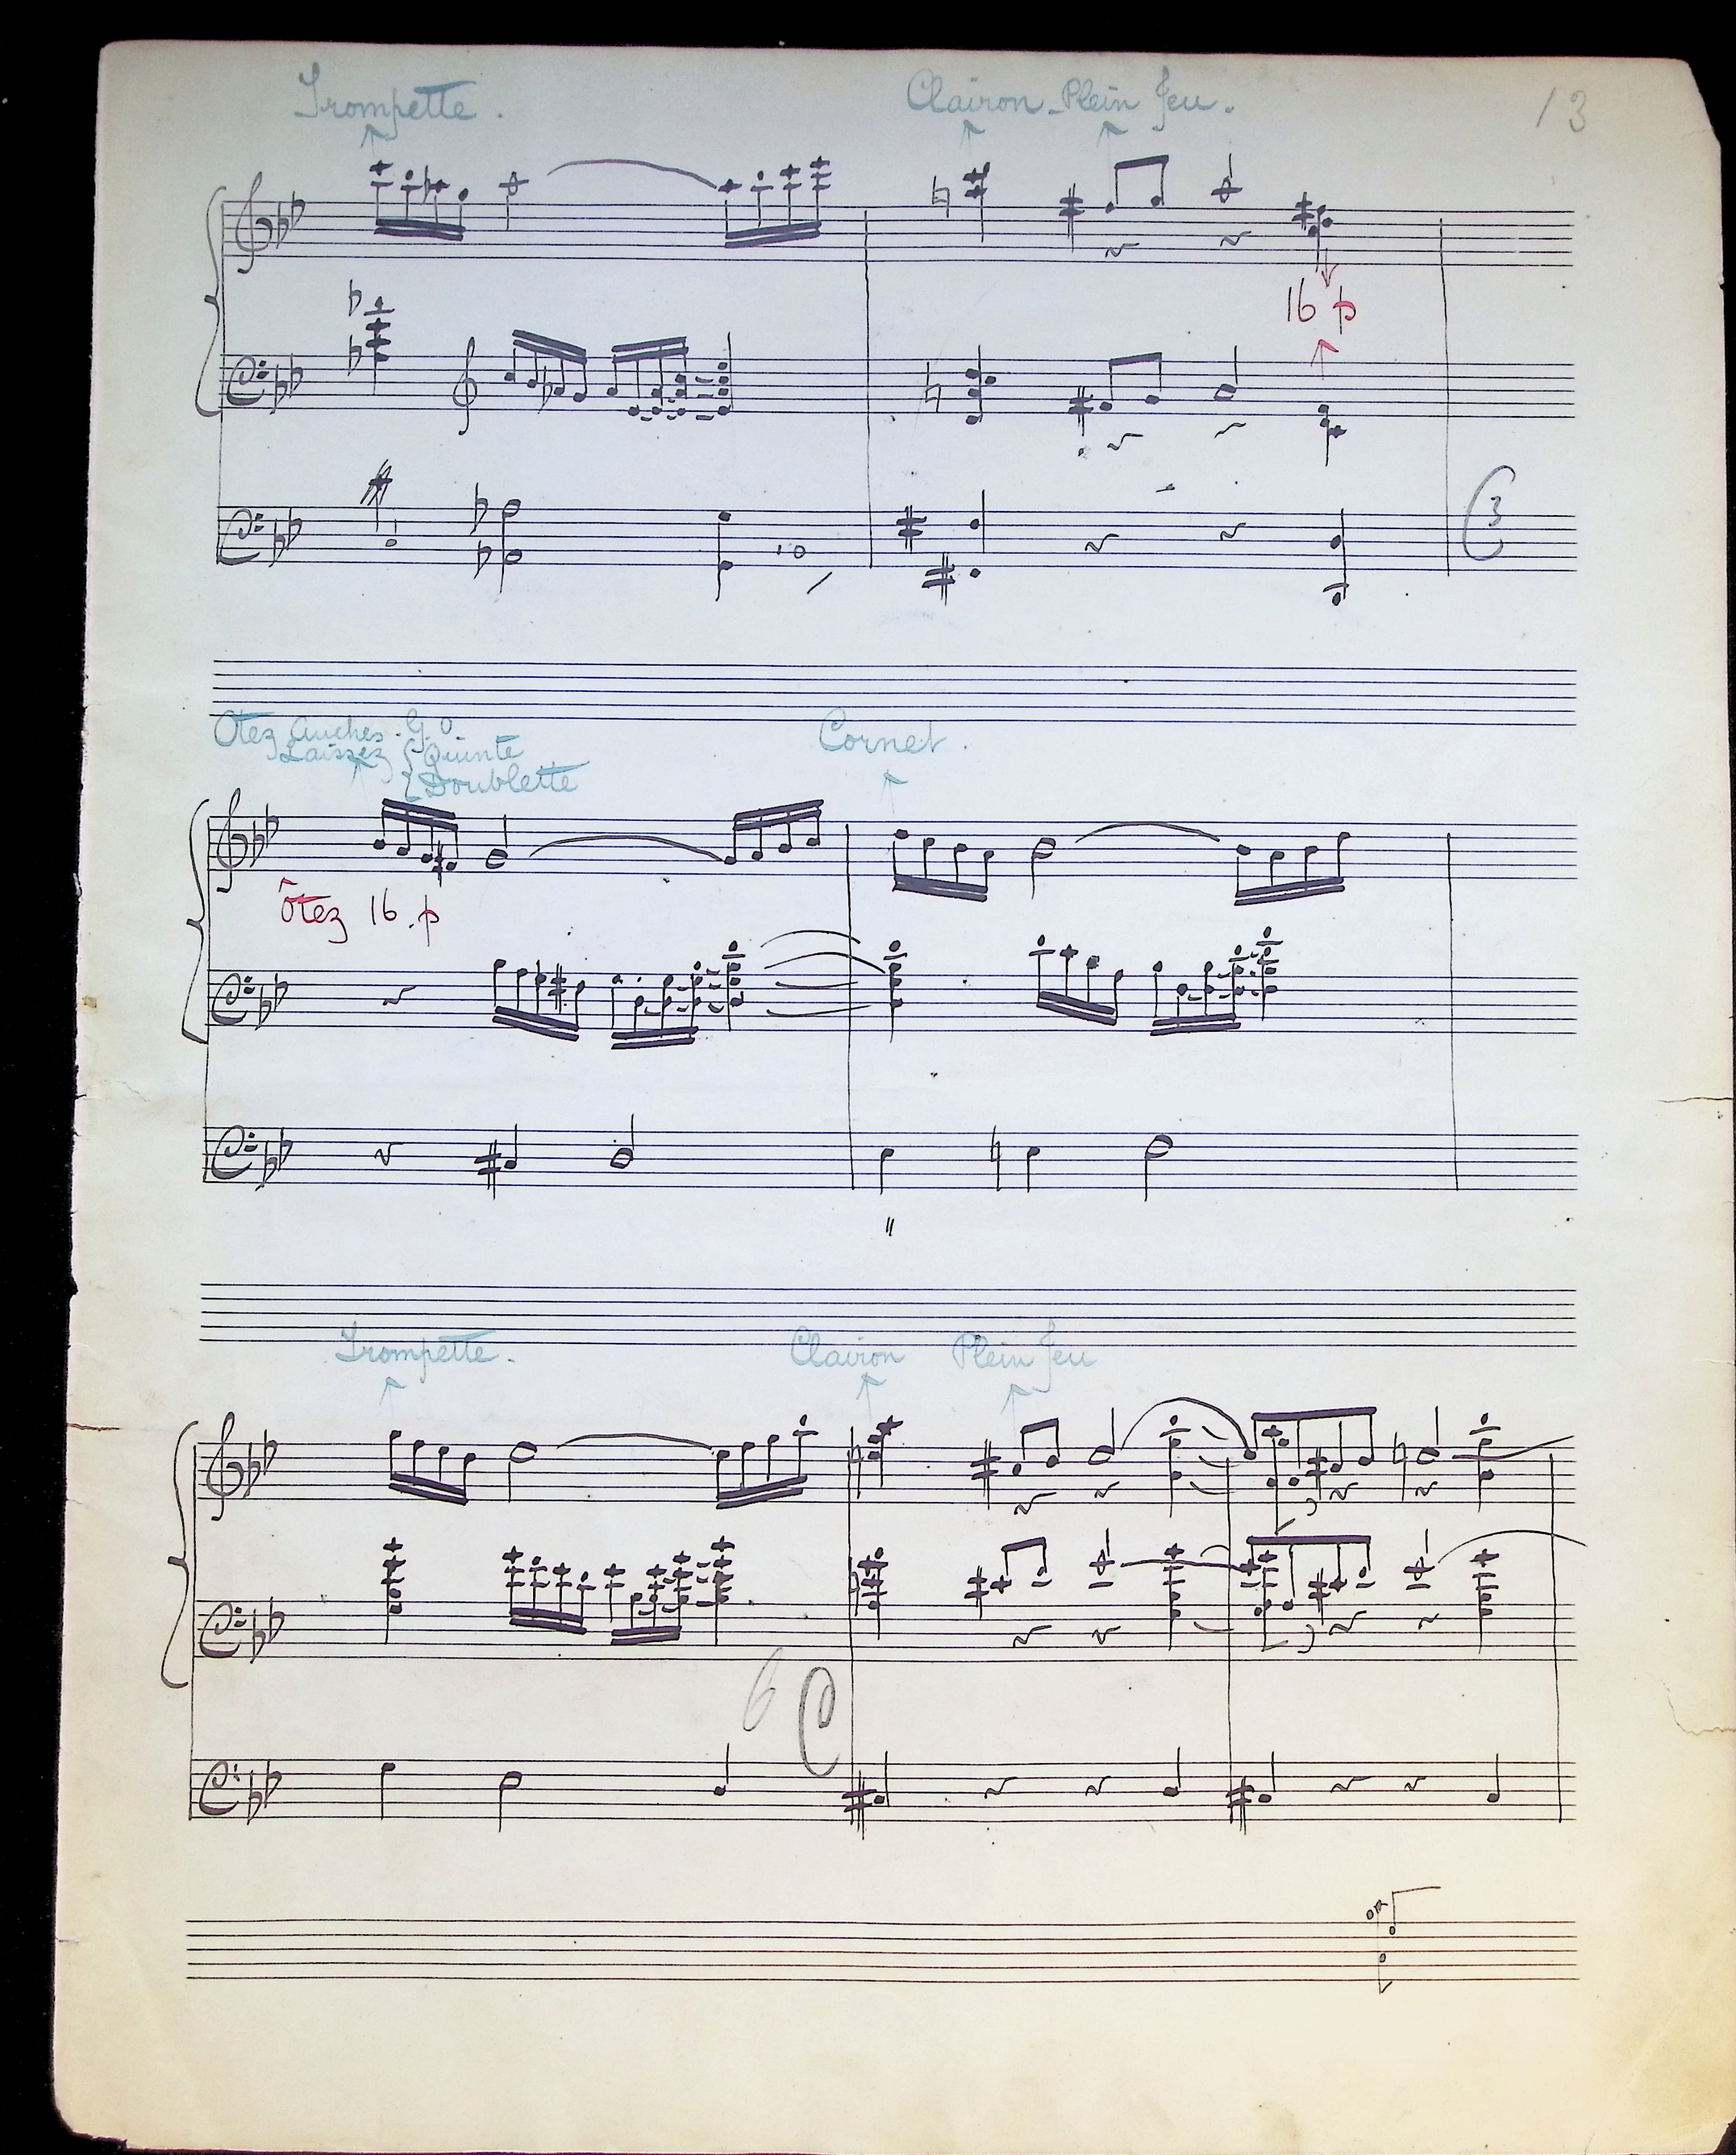 Trompette.
Clairon - Plein Jeu.
13
16 p
3
Otez anches. G.O.
Laissez { Quinte
Doublette
Cornet.
ôtez 16.p
Trompette.
Clairon Plein Jeu
6